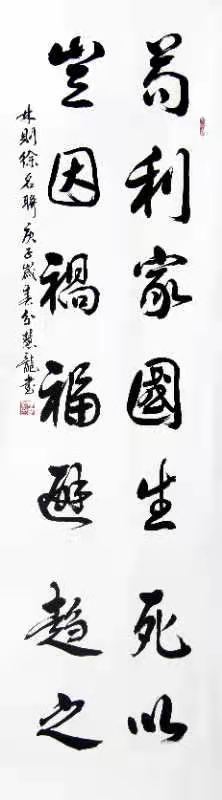 苟利家國生死以
豈因禍福避趨之
林則徐名聯 庚子歲吴公慧龍書